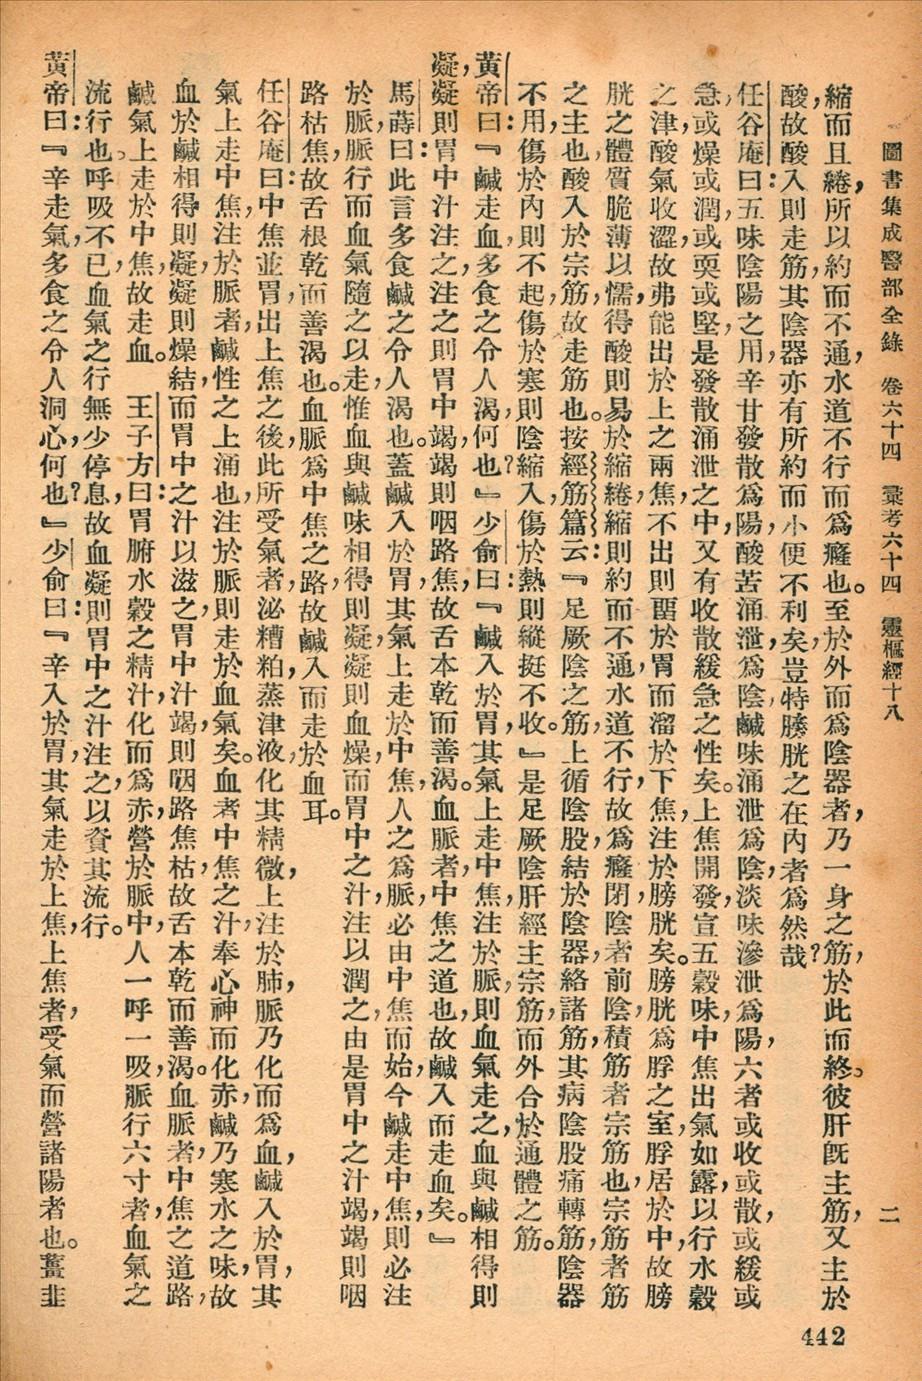 圖書集成醫部全錄　卷六十四　彙考六十四　靈樞經十八　二
442
縮而且綣，所以約而不通，水道不行而爲癃也。至於外而爲陰器者，乃一身之筋，於此而終。彼肝旣主筋，又主於
酸，故酸入則走筋，其陰器亦有所約而小便不利矣，豈特膀胱之在內者爲然哉？
任谷庵曰：五味陰陽之用，辛甘發散爲陽，酸苦涌泄爲陰，鹹味涌泄爲陰，淡味滲泄爲陽，六者或收或散，或緩或
急，或燥或潤，或耎或堅，是發散涌泄之中，又有收散緩急之性矣。上焦開發，宣五穀味，中焦出氣如露，以行水穀
之津，酸氣收澀，故弗能出於上之兩焦，不出則畱於胃而溜於下焦，注於膀胱矣。膀胱爲脬之室，脬居於中，故膀
胱之體質脆薄以懦，得酸則易於縮綣，縮則約而不通，水道不行，故爲癃閉，陰者前陰，積筋者宗筋也，宗筋者筋
之主也，酸入於宗筋，故走筋也。按經筋篇云：『足厥陰之筋，上循陰股，結於陰器，絡諸筋，其病陰股痛轉筋，陰器
不用，傷於內則不起，傷於寒則陰縮入，傷於熱則縱挺不收。』是足厥陰肝經主宗筋，而外合於通體之筋。
黃帝曰：『鹹走血，多食之令人渴，何也？』少俞曰：『鹹入於胃，其氣上走中焦，注於脈，則血氣走之，血與鹹相得則
凝，凝則胃中汁注之，注之則胃中竭，竭則咽路焦，故舌本乾而善渴。血脈者，中焦之道也，故鹹入而走血矣。』
馬蒔曰：此言多食鹹之令人渴也。蓋鹹入於胃，其氣上走於中焦，人之爲脈，必由中焦而始，今鹹走中焦，則必注
於脈，脈行而血氣隨之以走，惟血與鹹味相得則凝，凝則血燥，而胃中之汁注以潤之，由是胃中之汁竭，竭則咽
路枯焦，故舌根乾而善渴也。血脈爲中焦之路，故鹹入而走於血耳。
任谷庵曰：中焦並胃，出上焦之後，此所受氣者，泌糟粕，蒸津液，化其精微，上注於肺，脈乃化而爲血，鹹入於胃，其
氣上走中焦，注於脈者，鹹性之上涌也，注於脈則走於血氣矣。血者中焦之汁，奉心神而化赤，鹹乃寒水之味，故
血於鹹相得則凝，凝則燥結，而胃中之汁以滋之，胃中汁竭，則咽路焦枯，故舌本乾而善渴。血脈者，中焦之道路，
鹹氣上走於中焦，故走血。　王子方曰：胃腑水穀之精汁，化而爲赤，營於脈中，人一呼一吸，脈行六寸者，血氣之
流行也。呼吸不已，血氣之行無少停息，故血凝則胃中之汁注之，以資其流行。
黃帝曰：『辛走氣，多食之令人洞心，何也？』少俞曰：『辛入於胃，其氣走於上焦，上焦者，受氣而營諸陽者也。薑韭